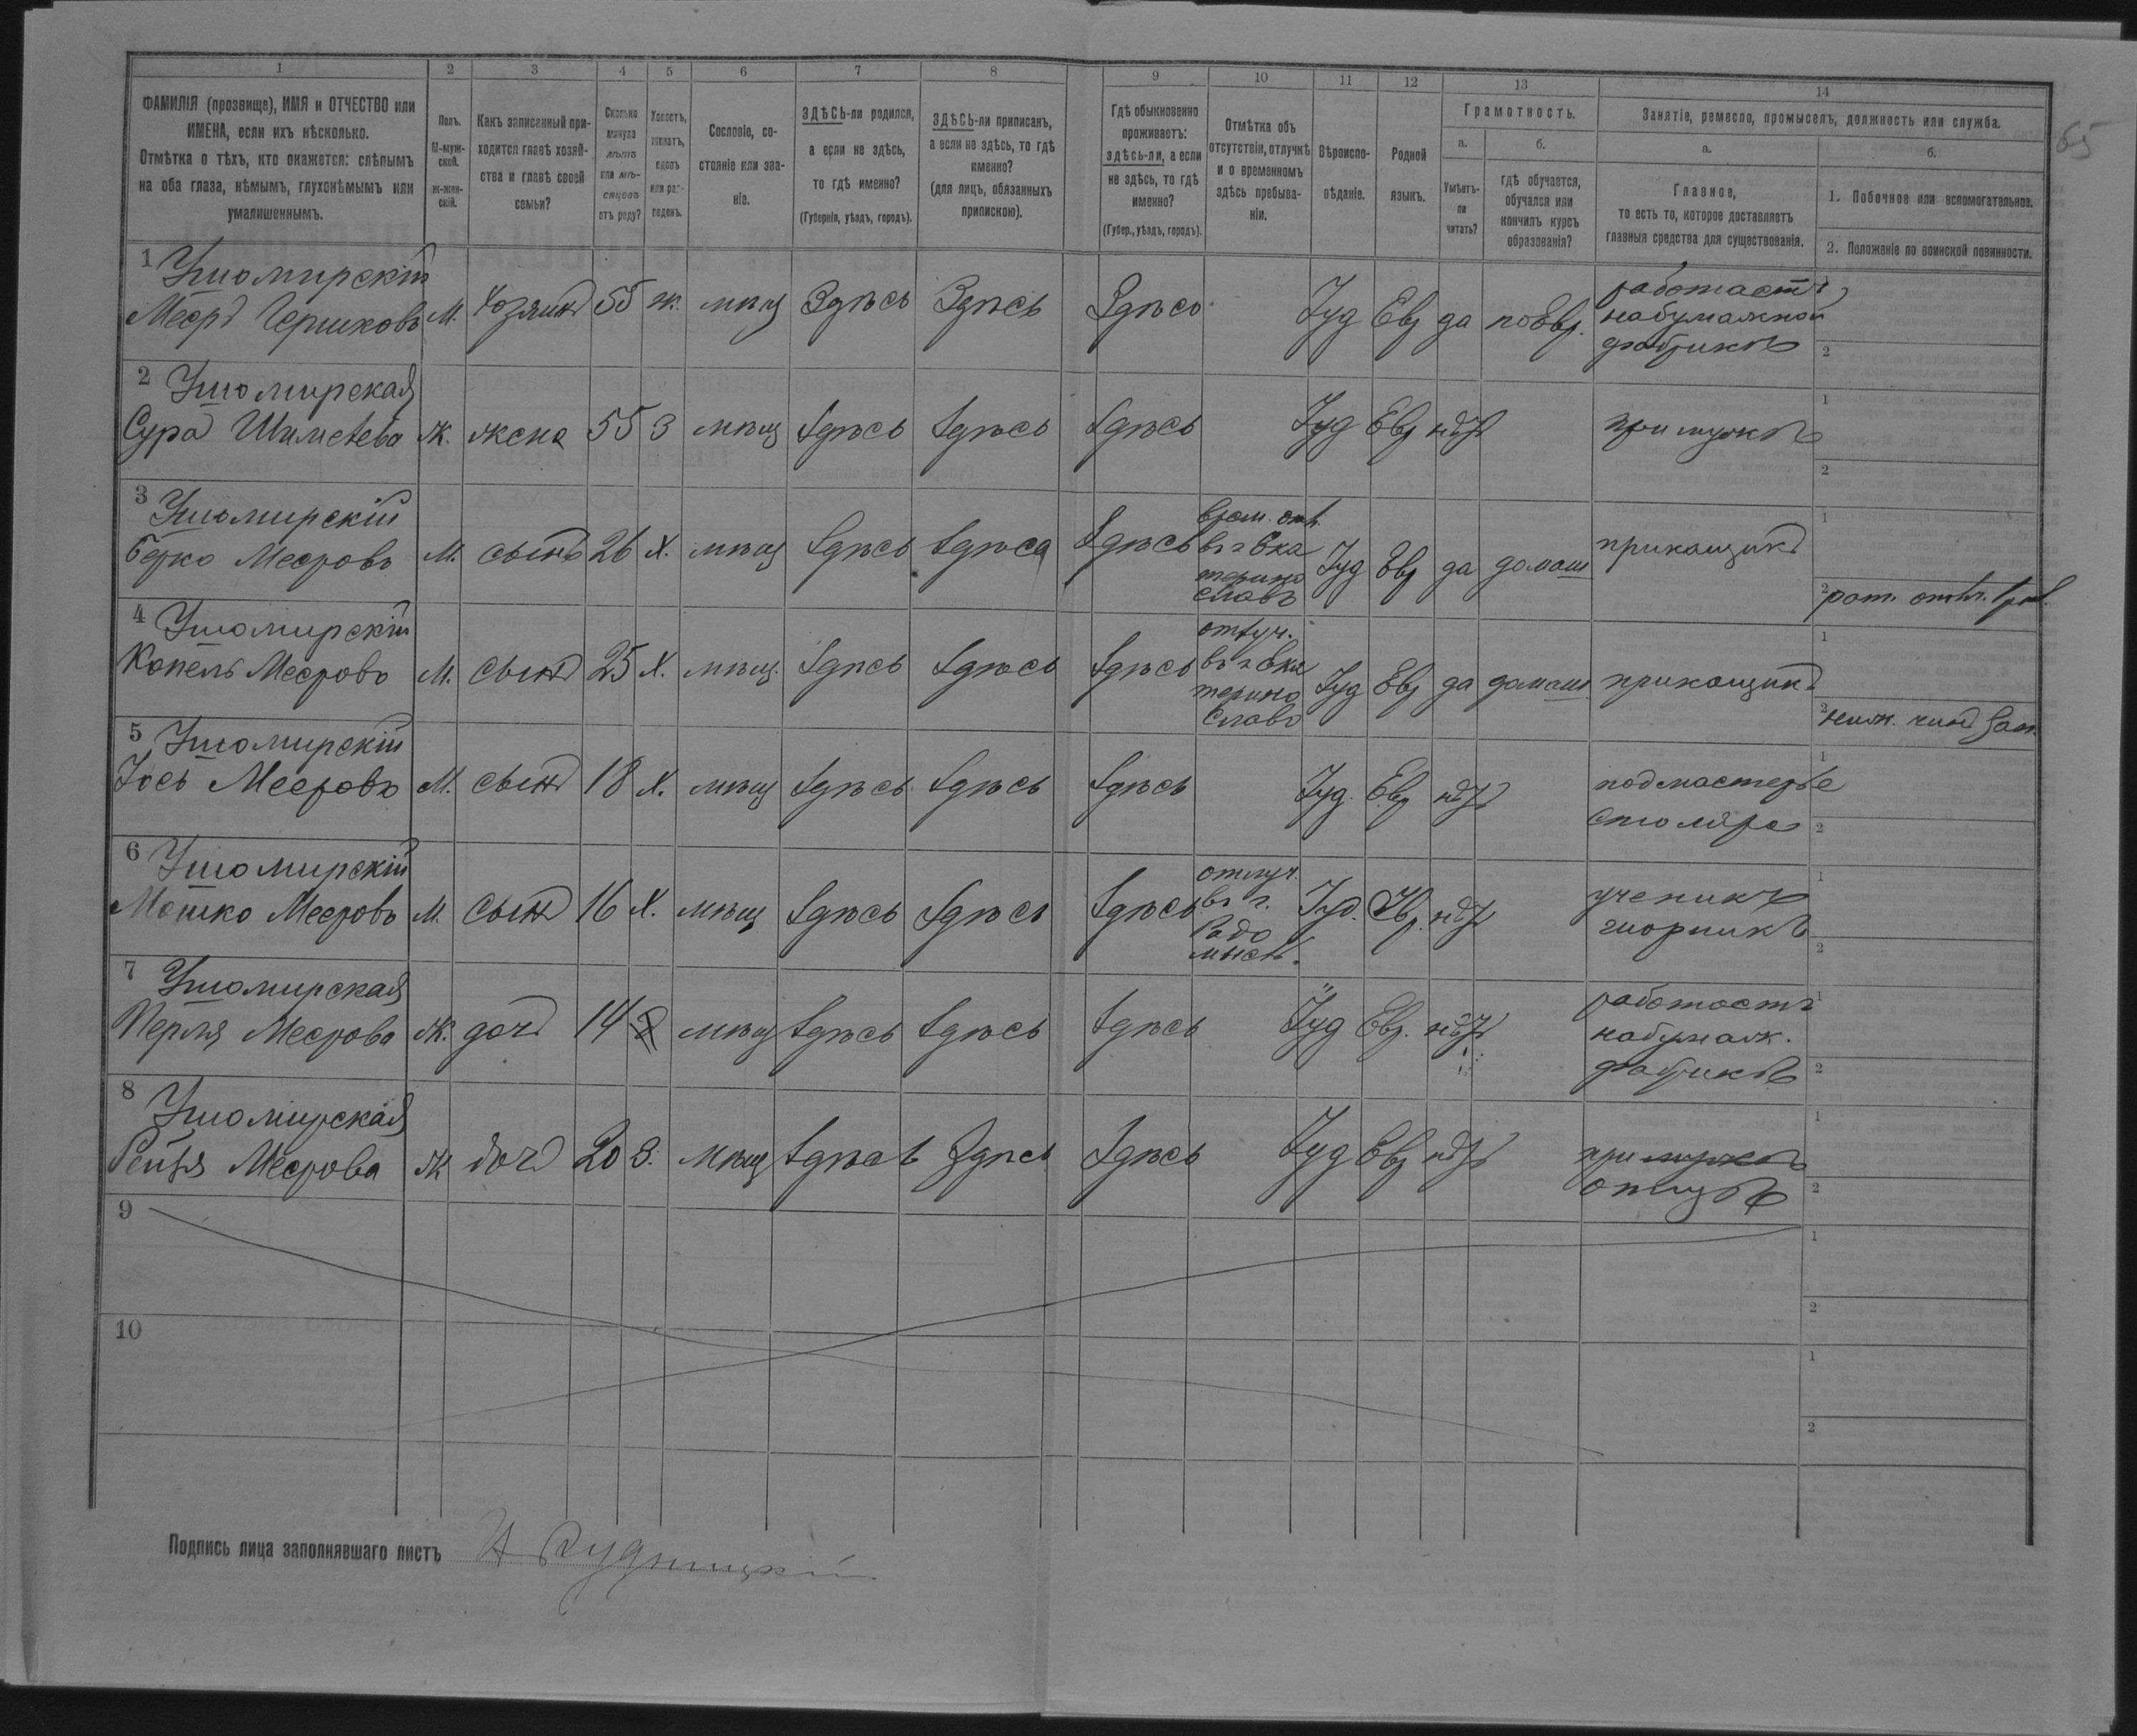 1 2 3 4 5 6 7 8 9 10 11 12 13 14
65
ФАМИЛІЯ (прозвище), ИМЯ и ОТЧЕСТВО или
ИМЕНА, если ихъ нѣсколько.
Отмѣтка о тѣхъ, кто окажется: слѣпымъ
на оба глаза, нѣмымъ, глухонѣмымъ или
умалишеннымъ.
Полъ.
М-муж-
ской.
ж-жен-
скій.
Какъ записанный при-
ходится главѣ хозяй-
ства и главѣ своей
семьи?
Сколько
минуло
лѣтъ
или мѣ-
сяцевъ
отъ роду?
Холостъ,
женатъ,
вдовъ
или раз-
веденъ.
Сословіе, со-
стояніе или зва-
ніе.
ЗДѢСЬ-ли родился,
а если не здѣсь,
то гдѣ именно?
(Губернія, уѣздъ, городъ).
ЗДѢСЬ-ли приписанъ,
а если не здѣсь, то гдѣ
именно?
(для лицъ, обязанныхъ
припискою).
Гдѣ обыкновенно
проживаетъ:
здѣсь-ли, а если
не здѣсь, то гдѣ
именно?
(Губер., уѣздъ, городъ).
Отмѣтка объ
отсутствіи, отлучкѣ
и о временномъ
здѣсь пребыва-
ніи.
Вѣроиспо-
вѣданіе.
Родной
языкъ.
Грамотность.
а.
Умѣетъ-
ли
читать?
б.
гдѣ обучается,
обучался или
кончилъ курсъ
образованія?
Занятіе, ремесло, промыселъ, должность или служба.
а.
Главное,
то есть то, которое доставляетъ
главныя средства для существованія.
б.
1. Побочное или вспомогательное.
2. Положеніе по воинской повинности.
1 Ушомирскій
Мееръ Гершковъ М. хозяинъ 55 ж. мѣщ Здѣсь Здѣсь Здѣсь Іуд Евр да по Евр.
работаетъ
на бумажной
фабрикѣ
1
2
2 Ушомирская
Сура Ж. жена 55 З мѣщ Здѣсь Здѣсь Здѣсь Іуд Евр нѣтъ при мужѣ
1
2
3 Ушомирскій
Берко Мееровъ М. сынъ 26 Х. мѣщ Здѣсь Здѣсь Здѣсь
врем. отл.
въ г Ека
терино
славъ
Іуд Евр да домаш прикащикъ
1
2 рат. опол.
4 Ушомирскій
Копель Мееровъ М. сынъ 25 Х. мѣщ. Здѣсь Здѣсь Здѣсь
отлуч.
въ г Ека
терино
славъ
Іуд Евр да домаш прикащикъ
1
2 ниж. чинъ зап.
5 Ушомирскій
Іось Мееровъ М. сынъ 18 Х. мѣщ Здѣсь Здѣсь Здѣсь Іуд. Евр нѣтъ
подмастерье
столяра
1
2
6 Ушомирскій
Мошко Мееровъ М. сынъ 16 Х. мѣщ Здѣсь Здѣсь Здѣсь
отлуч.
въ г.
Радо
мысл.
Іуд. Евр. нѣтъ
ученикъ
1
2
7 Ушомирская
Перля Меерова Ж. дочь 14 мѣщ Здѣсь Здѣсь Здѣсь Іуд Евр. нѣтъ
работаетъ
на бумаж.
фабрикѣ
1
2
8 Ушомирская
Рейзя Меерова Ж дочь 20 З. мѣщ Здѣсь Здѣсь Здѣсь Іуд Евр нѣтъ
при мужѣ
отцѣ
1
2
9
1
2
10
1
2
Подпись лица заполнявшаго листъ И Рудницкій